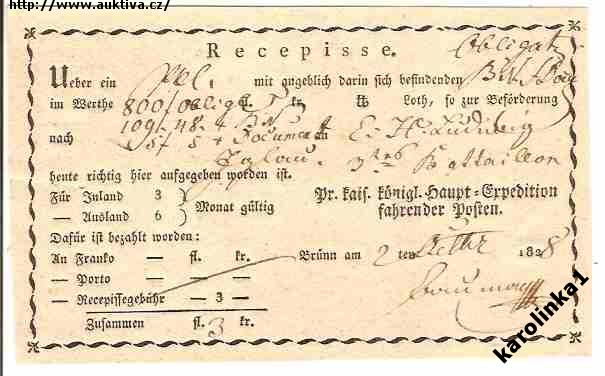 http://www.auktiva.cz/
Recepisse.
Obligat
Ueber ein Pel. mit angeblich darin sich befindenden
im Werthe 800/Oblig fl. kr. ℔ Loth, so zur Beförderung
109 48
nach Document an E. H. Ludwig
Iglau Battaillon
heute richtig hier aufgegeben worden ist.
Für Inland 3
— Ausland 6
Monat gültig
Pr. kais. königl. Haupt-Expedition
fahrender Posten.
Dafür ist bezahlt worden:
An Franko — fl. — kr.
Brünn am 2 ten 1828
— Porto — — —
— Recepissegebühr — 3 —
Zusammen fl. 3 kr.
karolinka1